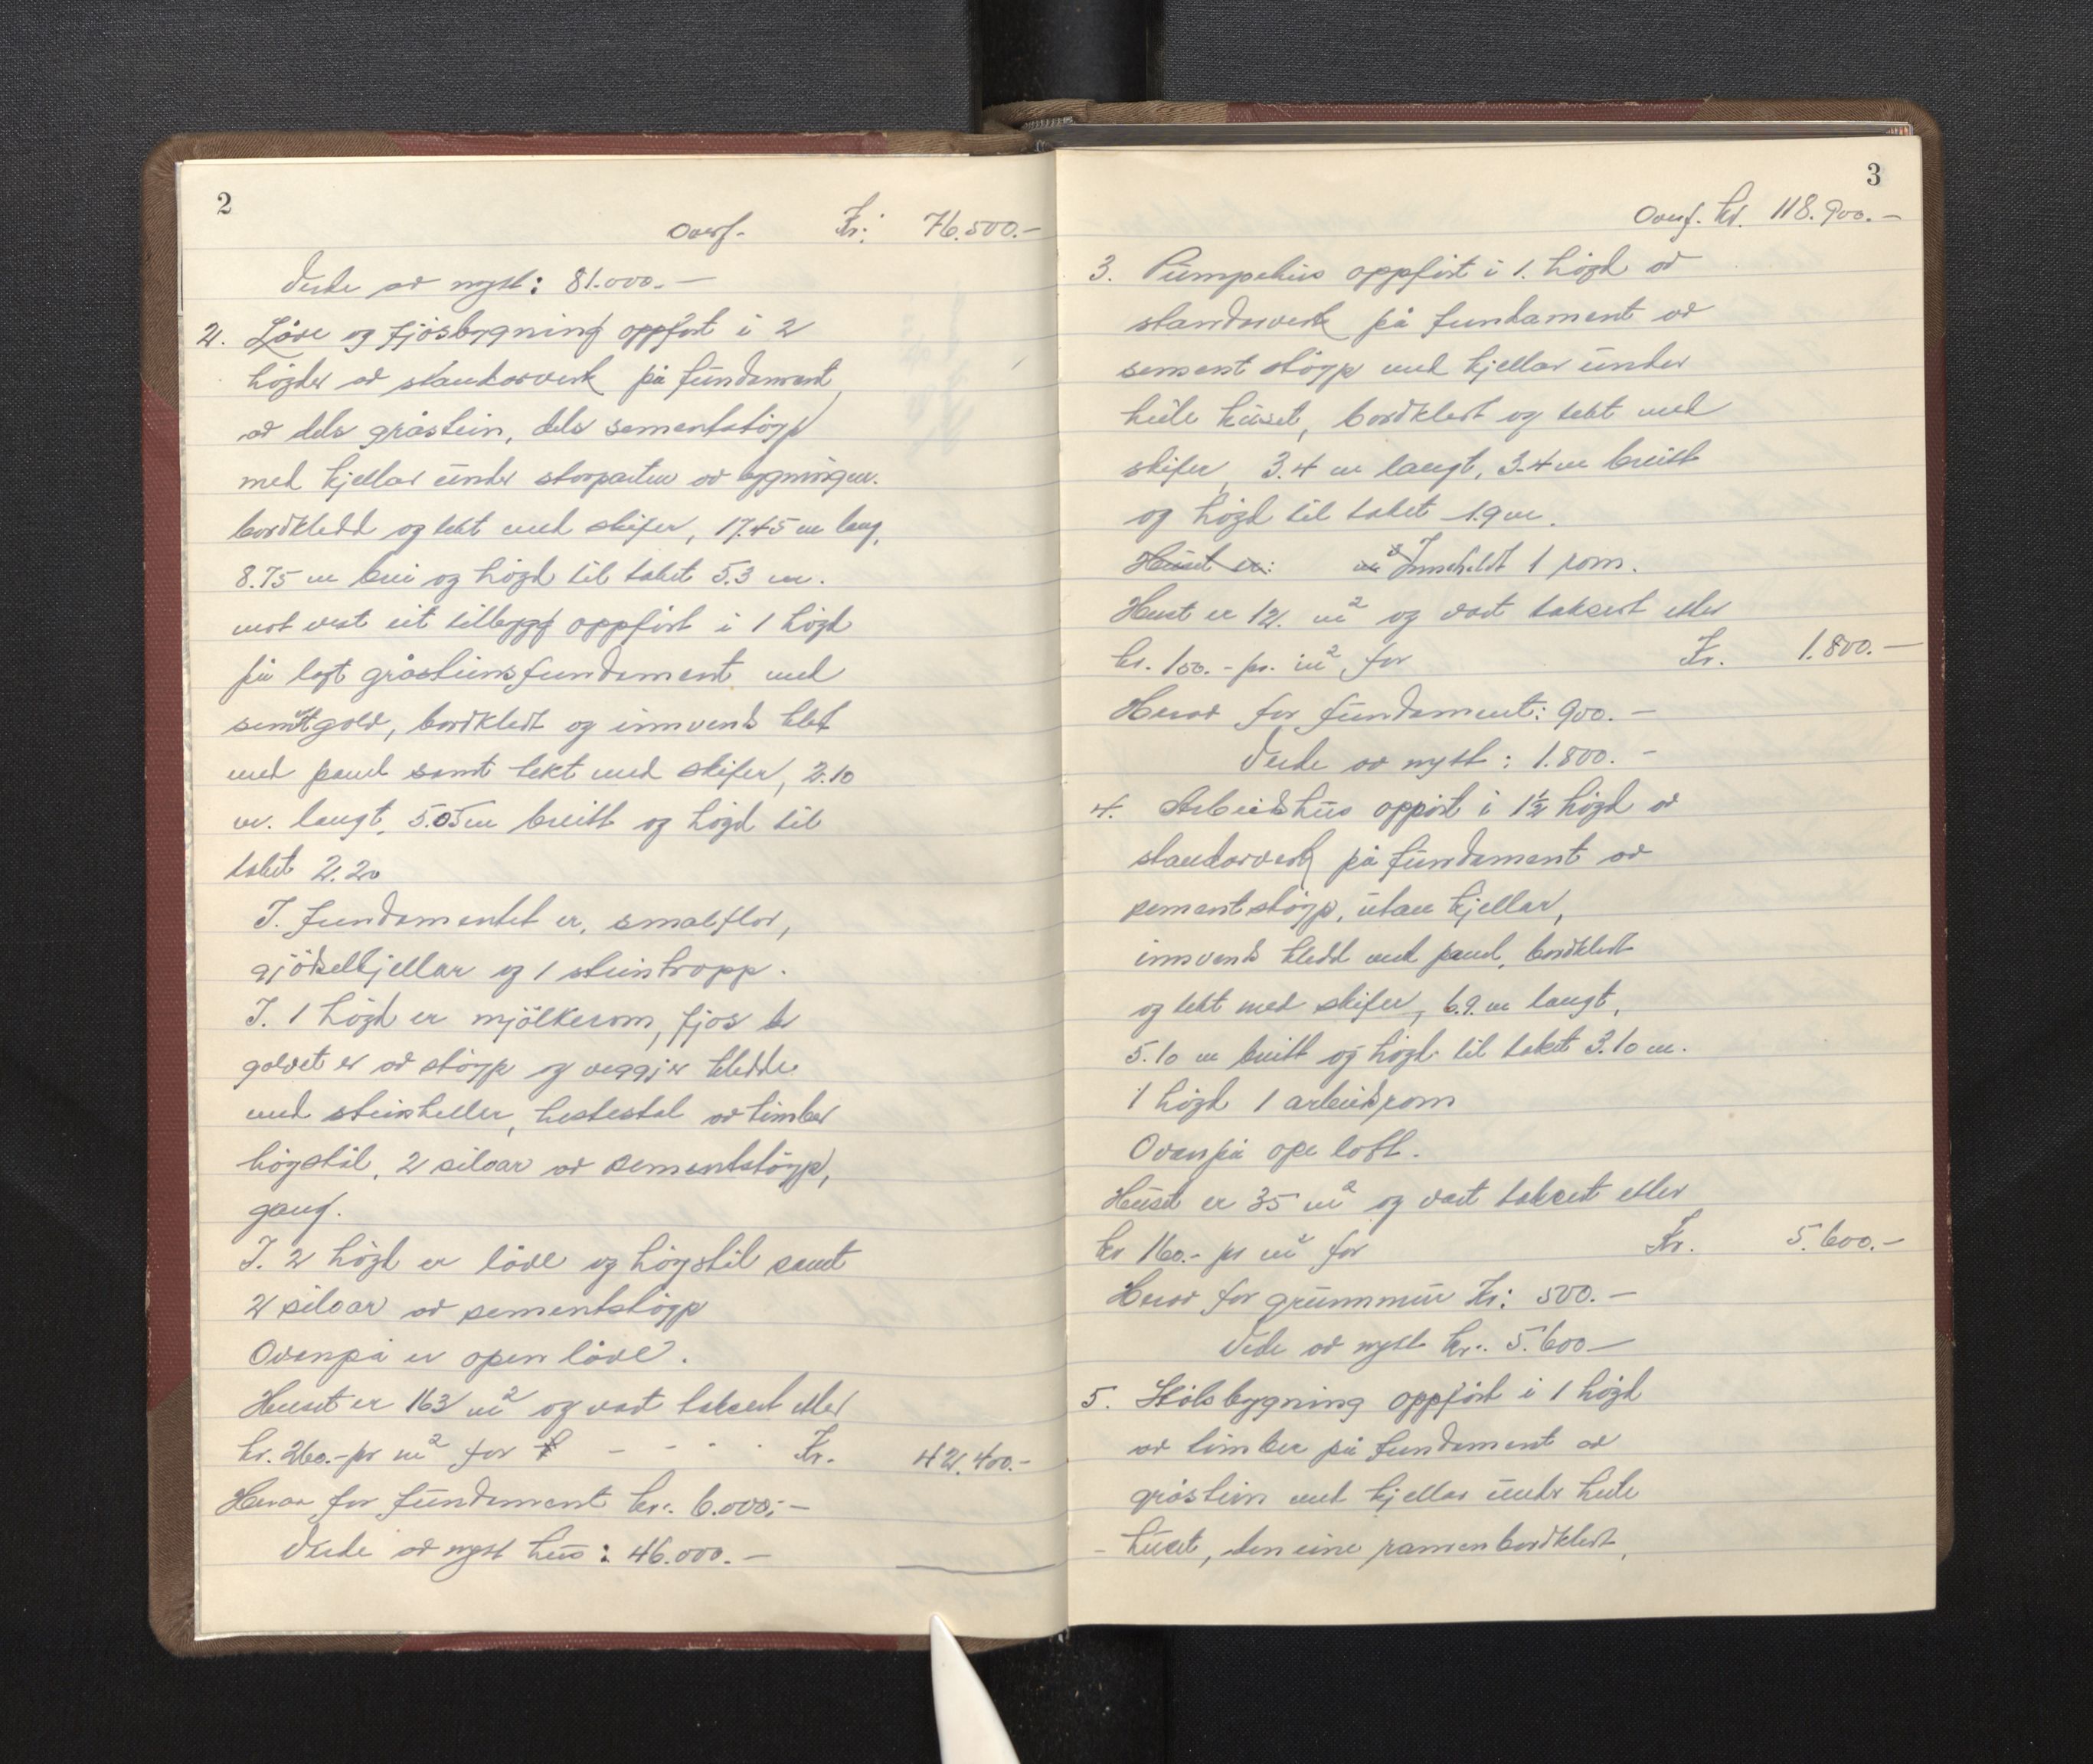 2
Overf. Kr: 76.500.-
Verde av nytt: 81.000.-
2. Löve og fjösbygning oppfört i 2
högder av standarverk på fundament
av dels gråstein, dels sementstöyp
med kjellar under storparten av bygningen.
bordkledd og tekt med skifer, 17.45 m lang,
8.75 m brei og högd til taket 5.3 m.
mot vest eit tillegg oppfört i 1 högd
på lagt gråsteinsfundament med
sementgolv, bordkledt og innvends kledt
med panel samt tekt med skifer, 2.10
m. langt, 5.05 m breitt og högd til
taket 2.20
I. fundamentet er, smalflor,
gjödselkjellar og 1 steintropp.
I. 1 högd er mjölkerom, fjos der
golvet er av stöyp og veggjer kledde
med steinheller, hestestal av timber
högstål, 2 siloar av sementstöyp,
gang.
I. 2 högd er löve og högstål samt
2 siloar av sementstöyp
Ovenpå er open löve.
Huset er 163 m² og vart taksert etter
kr. 260.- pr m² for - - - - Kr. 42.400.-
Herav for fundament kr. 6.000.-
Verde av nytt hus: 46.000.-
3
Overf. kr. 118.900.-
3. Pumpehus oppfört i 1. högd av
standarverk på fundament av
sement stöyp med kjellar under
heile huset, bordkledt og tekt med
skifer, 3.4 m langt, 3.4 m breitt
og högd til taket 1.9 m.
Huset er: Inneheldt 1 rom.
Huset er 12. m² og vart taksert etter
kr. 150.- pr. m² for Kr. 1.800.-
Herav for fundament: 900.-
Verde av nytt: 1.800.-
4. Arbeidshus oppört i 1½ högd av
standarverk på fundament av
sementstöyp, utan kjellar,
innvends kledd med panel, bordkledt
og tekt med skifer, 6.9. m langt,
5.10 m breitt og högd til taket 3.10 m.
i högd 1 arbeidsrom
Ovanpå ope loft.
Huset er 35 m² og vart taksert etter
kr 160.- pr m² for Kr. 5.600.-
Herav for grunnmur Kr: 500.-
Verde av nytt kr.. 5.600-
5. Stölsbygning oppfört i 1 högd
av timber på fundament av
gråstein med kjellar under heile
huset, den eine ramen bordkledt,